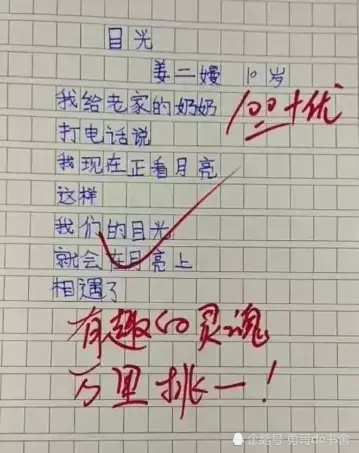 目光
姜二嫚 10岁
我给老家的奶奶
100+优
打电话说
我现在正看月亮
这样
我们的目光
就会在月亮上
相遇了
有趣的灵魂
万里挑一！
企鹅号 勇哥de书舍